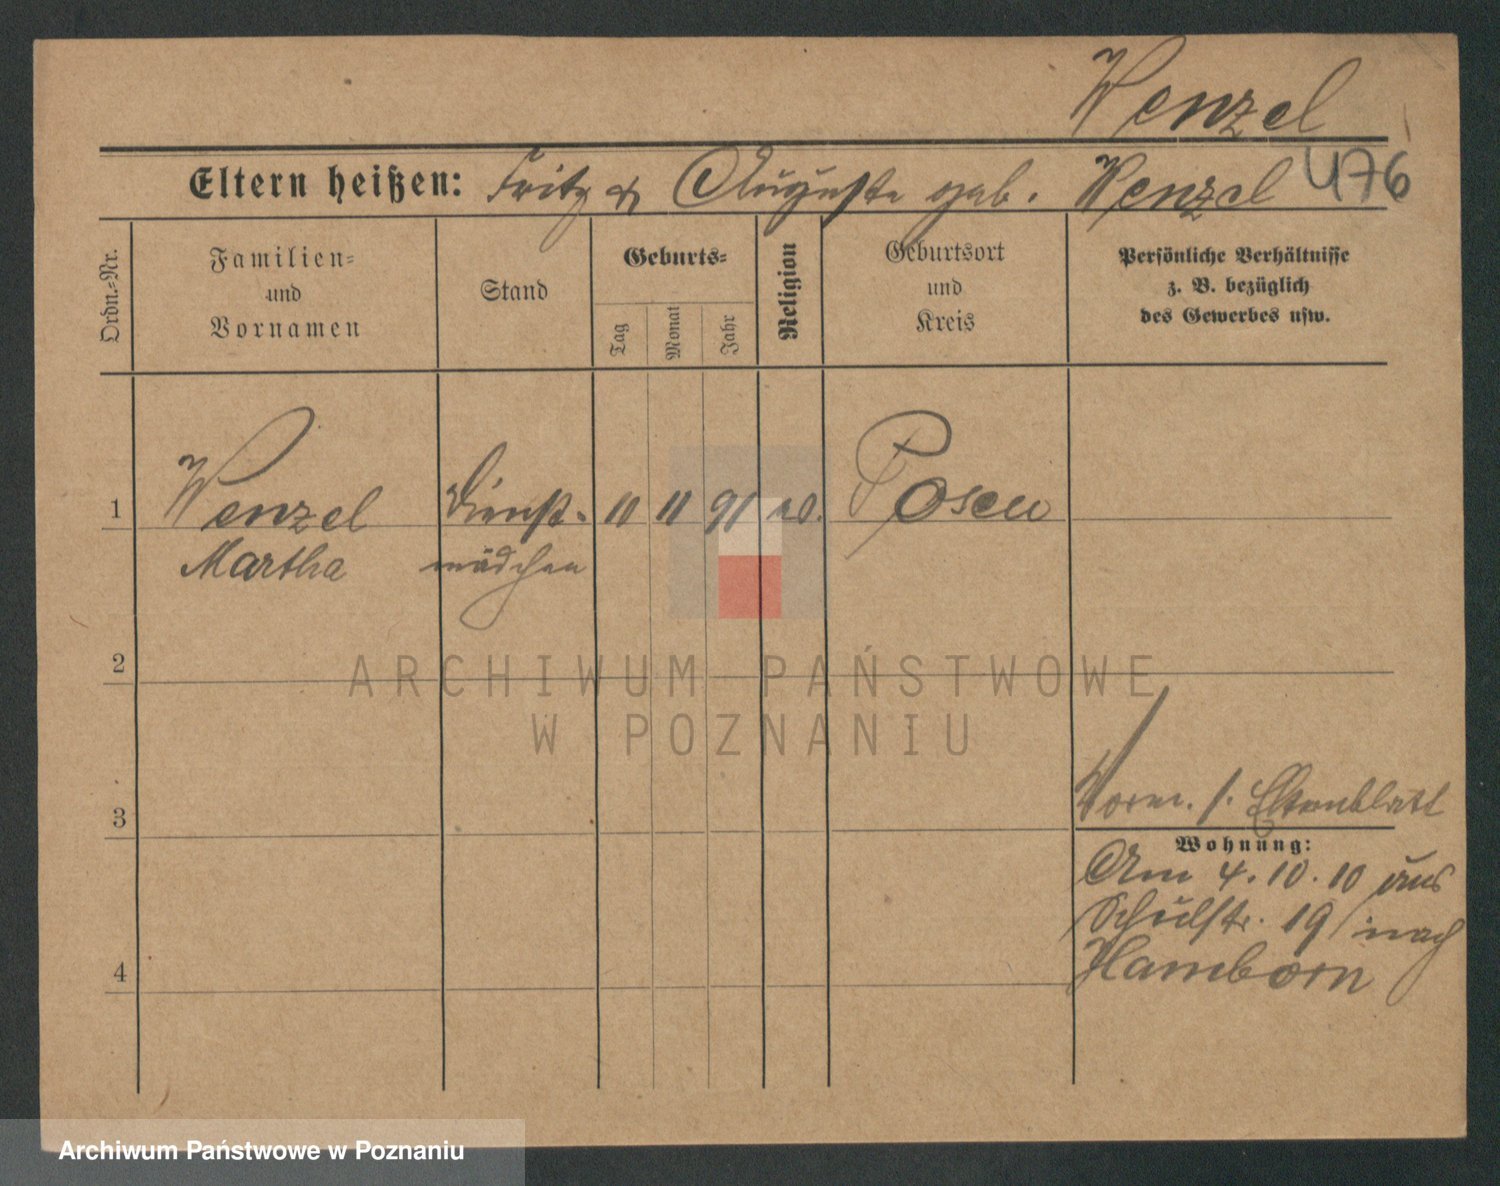 Wenzel
Eltern heißen: Fritz & Auguste geb. Wenzel 476
Ordn.=Nr.
Familien=
und
Vornamen
Stand
Geburts=
Tag
Monat
Jahr
Religion
Geburtsort
und
Kreis
Persönliche Verhältnisse
z. B. bezüglich
des Gewerbes usw.
1 Wenzel Dienst- 10 11 91 Posen
Martha mädchen
2
ARCHIWUM PAŃSTWOWE
W POZNANIU
3
Vorm. s. Elternblatt
Wohnung:
Am 4.10.10 aus
Schulstr. 19 nach
Hamborn
4
Archiwum Państwowe w Poznaniu